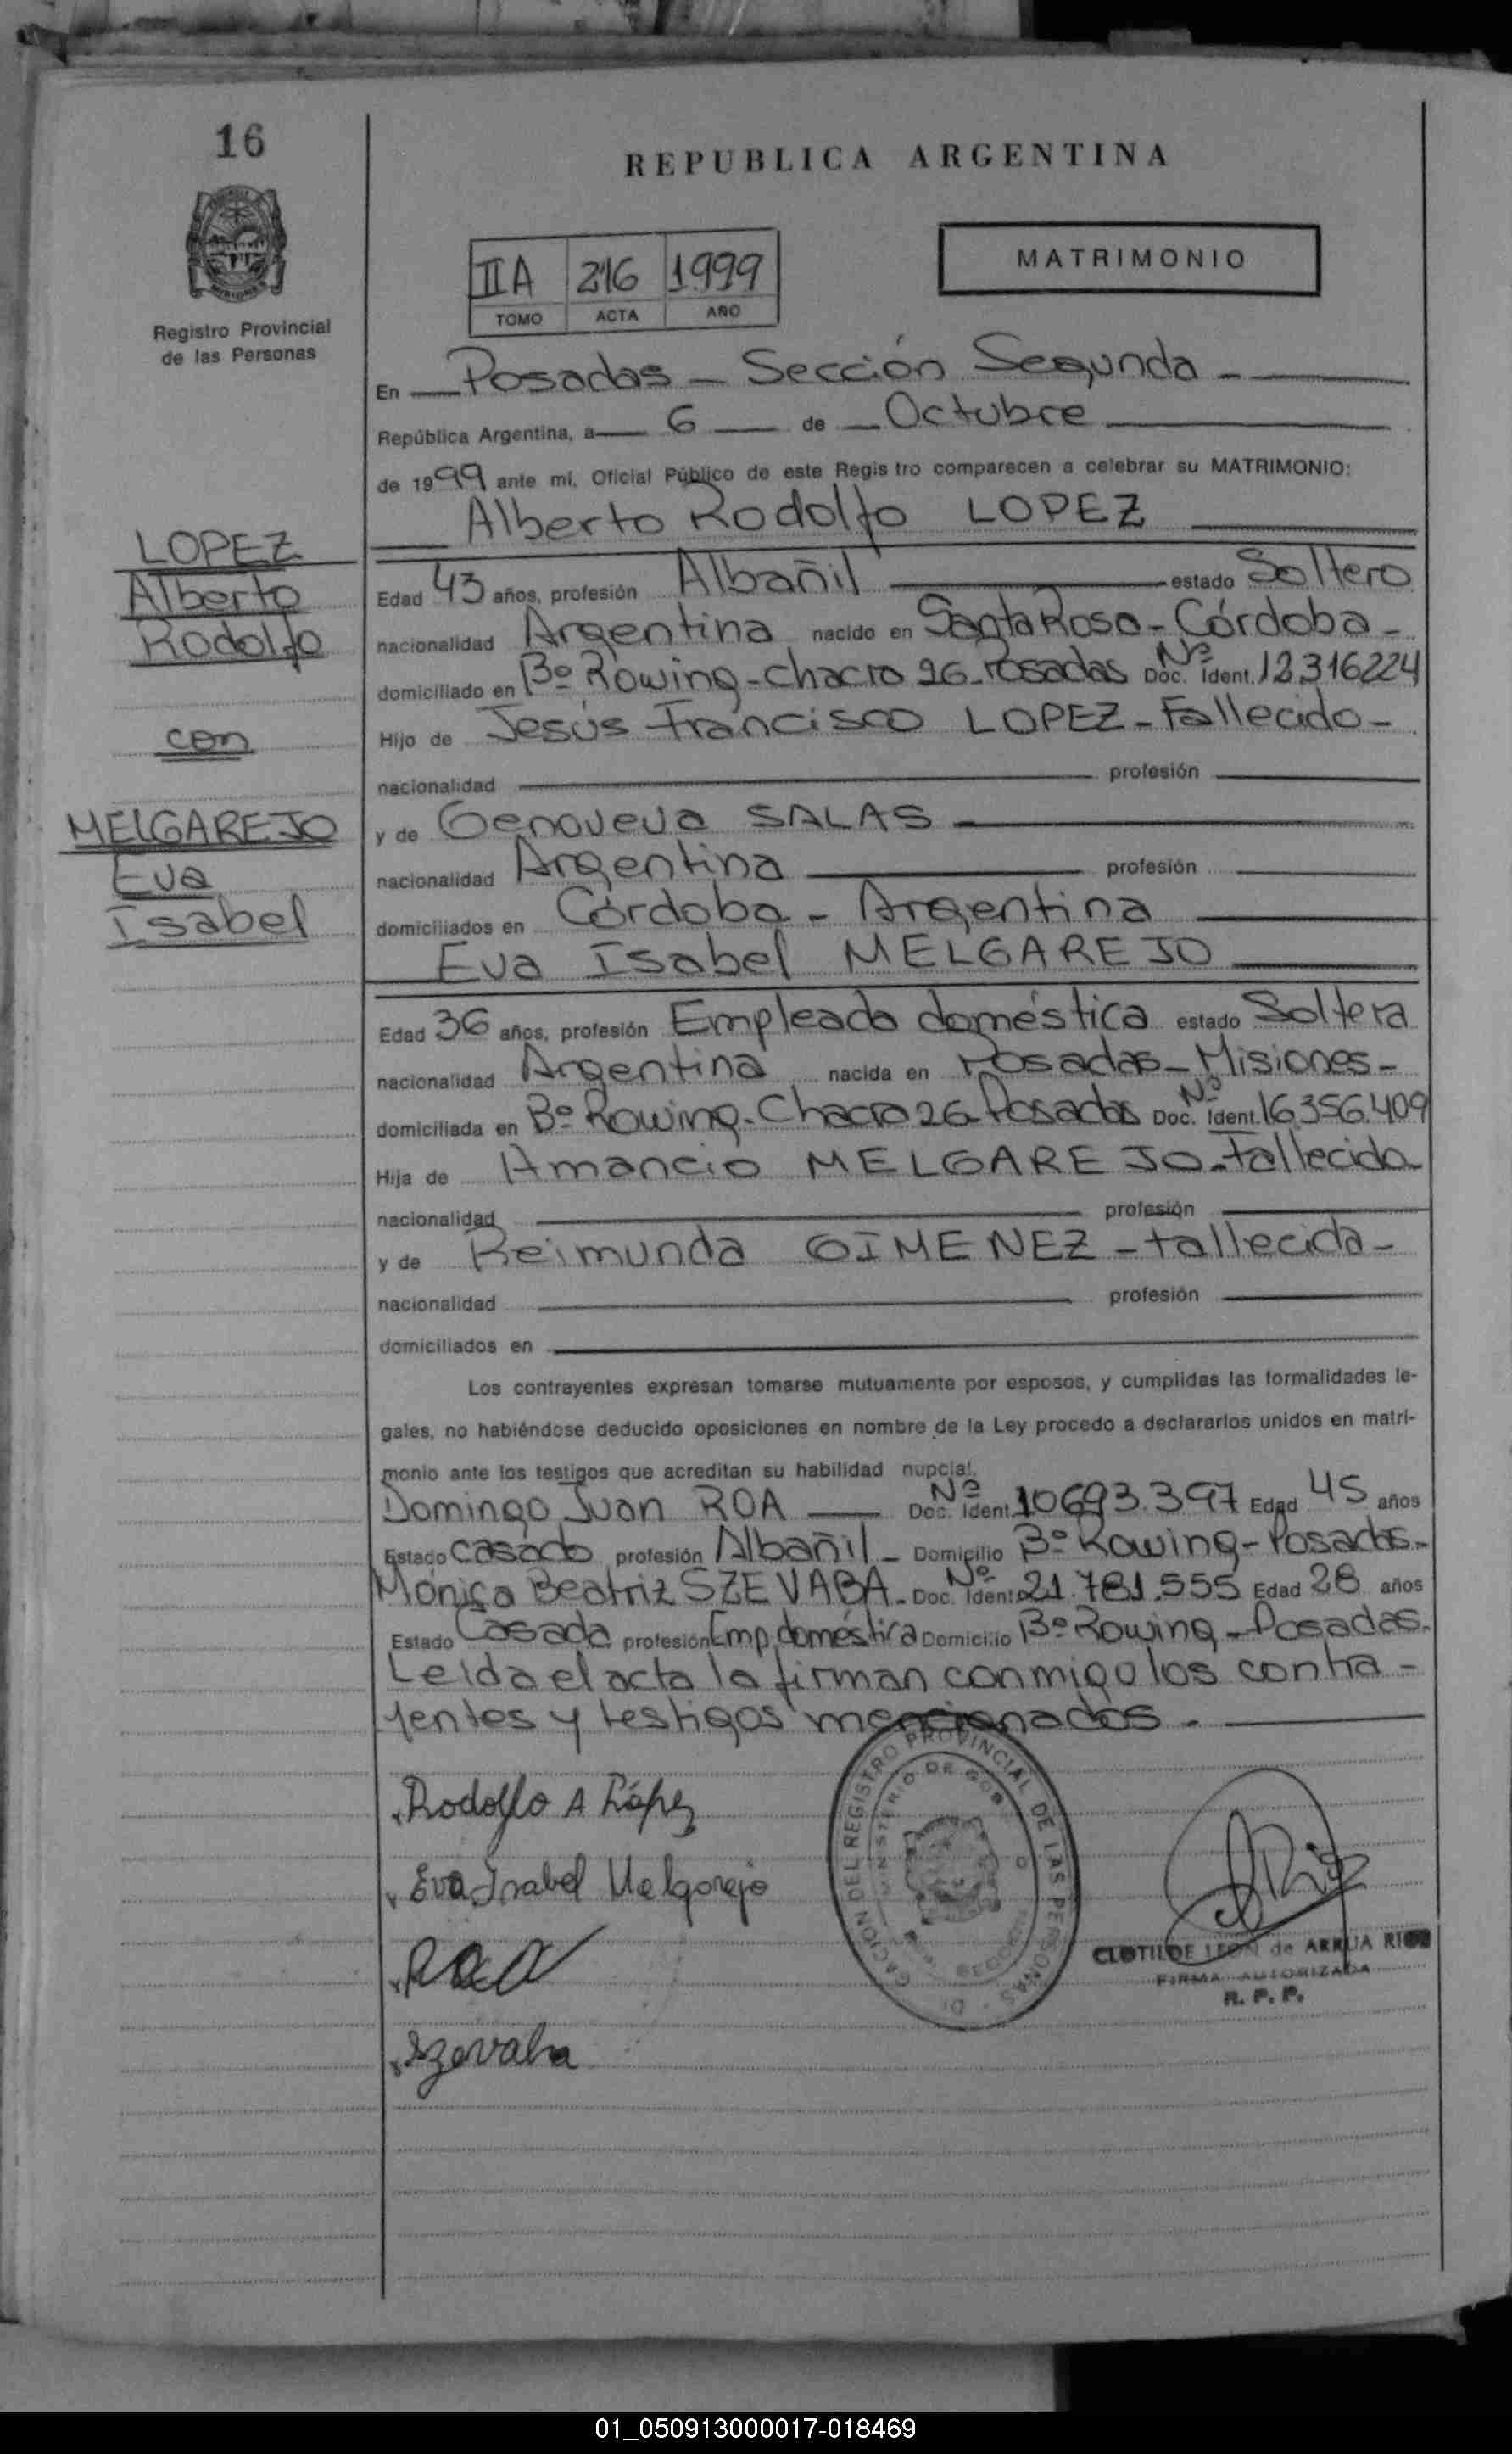 16
REPUBLICA ARGENTINA
MATRIMONIO
IIA 216 1999
TOMO ACTA AÑO
Registro Provincial
de las Personas
En Posadas - Sección Segunda -
República Argentina, a 6 de Octubre
de 1999 ante mí, Oficial Público de este Registro comparecen a celebrar su MATRIMONIO:
Alberto Rodolfo LOPEZ
LOPEZ
Alberto
Rodolfo
con
MELGAREJO
Eva
Isabel
Edad 43 años, profesión Albañil estado Soltero
nacionalidad Argentina nacido en Santa Rosa - Córdoba -
domiciliado en Bº Rowing - Chacra 26 - Posadas Doc. Nº Ident. 12316224
Hijo de Jesús Francisco LOPEZ - Fallecido -
nacionalidad profesión
y de Genoveva SALAS
nacionalidad Argentina profesión
domiciliados en Córdoba - Argentina
Eva Isabel MELGAREJO
Edad 36 años, profesión Empleada doméstica estado Soltera
nacionalidad Argentina nacida en Posadas - Misiones -
domiciliada en Bº Rowing - Chacra 26 - Posadas Doc. Nº Ident. 16.356.409
Hija de Amancio MELGAREJO - Fallecido
nacionalidad profesión
y de Reimunda GIMENEZ - fallecida -
nacionalidad profesión
domiciliados en
Los contrayentes expresan tomarse mutuamente por esposos, y cumplidas las formalidades le-
gales, no habiéndose deducido oposiciones en nombre de la Ley procedo a declararlos unidos en matri-
monio ante los testigos que acreditan su habilidad nupcial.
Domingo Juan ROA Doc. Nº Ident. 10693.397 Edad 45 años
Estado casado profesión Albañil - Domicilio Bº Rowing - Posadas -
Mónica Beatriz SZEVABA - Doc. Nº Ident. 21.781.555 Edad 28 años
Estado Casada profesión Emp. doméstica Domicilio Bº Rowing - Posadas.
Leída el acta la firman conmigo los contra-
yentes y testigos mencionados.
Rodolfo A López
Eva Isabel Melgarejo
ROA
Szevaba
GACION DEL REGISTRO PROVINCIAL DE LAS PERSONAS
MINISTERIO DE GOB
CLOTILDE LEON de ARRUA RIOS
FIRMA AUTORIZADA
R. P. P.
01_050913000017-018469